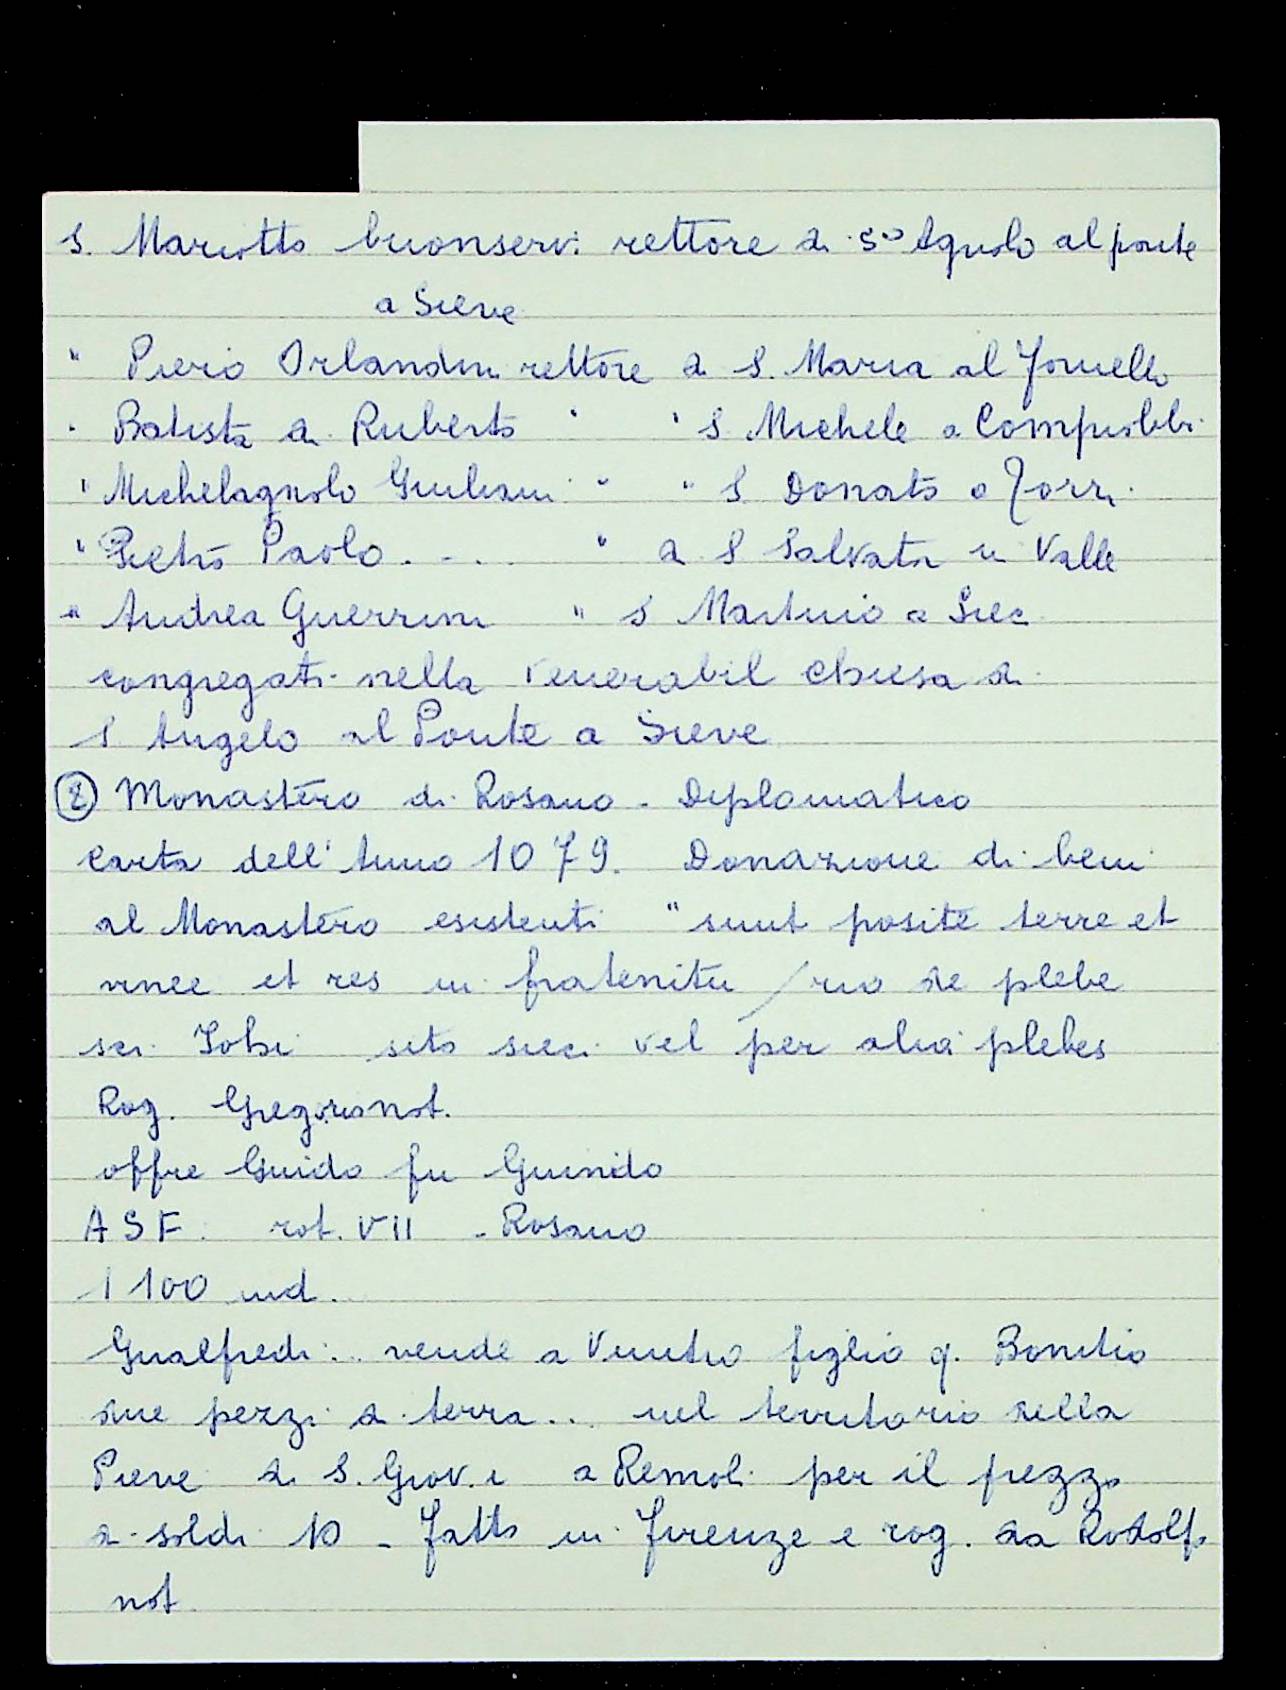 S. Mariotto buonservi rettore di S° Agnolo al ponte
a Sieve
" Piero Orlandini rettore di S. Maria al Fornello
" Batista di Ruberto " " S Michele a Compiobbi
" Michelagnolo Giuliani " " S Donato a Torri
" Pietro Paolo . . . . " di S Salvator in Valle
" Andrea Guerrini " S Martino a Siec
congregati nella venerabil chiesa di
S Angelo al Ponte a Sieve
⑧ Monastero di Rosano - Diplomatico
Carta dell'Anno 1079. Donazione di beni
al Monastero esistenti "sunt posite terre et
vinee et res in fratenitu / rio de plebe
sci Iohi sito sieci vel per alia plebes
Rog. Gregorio not.
offre Guido fu Guinildo
ASF. rot. VII - Rosano
1100 ind.
Gualfredi... vende a Vinitio figlio q. Bonitio
due pezzi di terra.. nel territorio della
Pieve di S. Giov. i a Remoli per il prezzo
di soldi 10 - fatto in Firenze e rog. da Rodolfo
not.